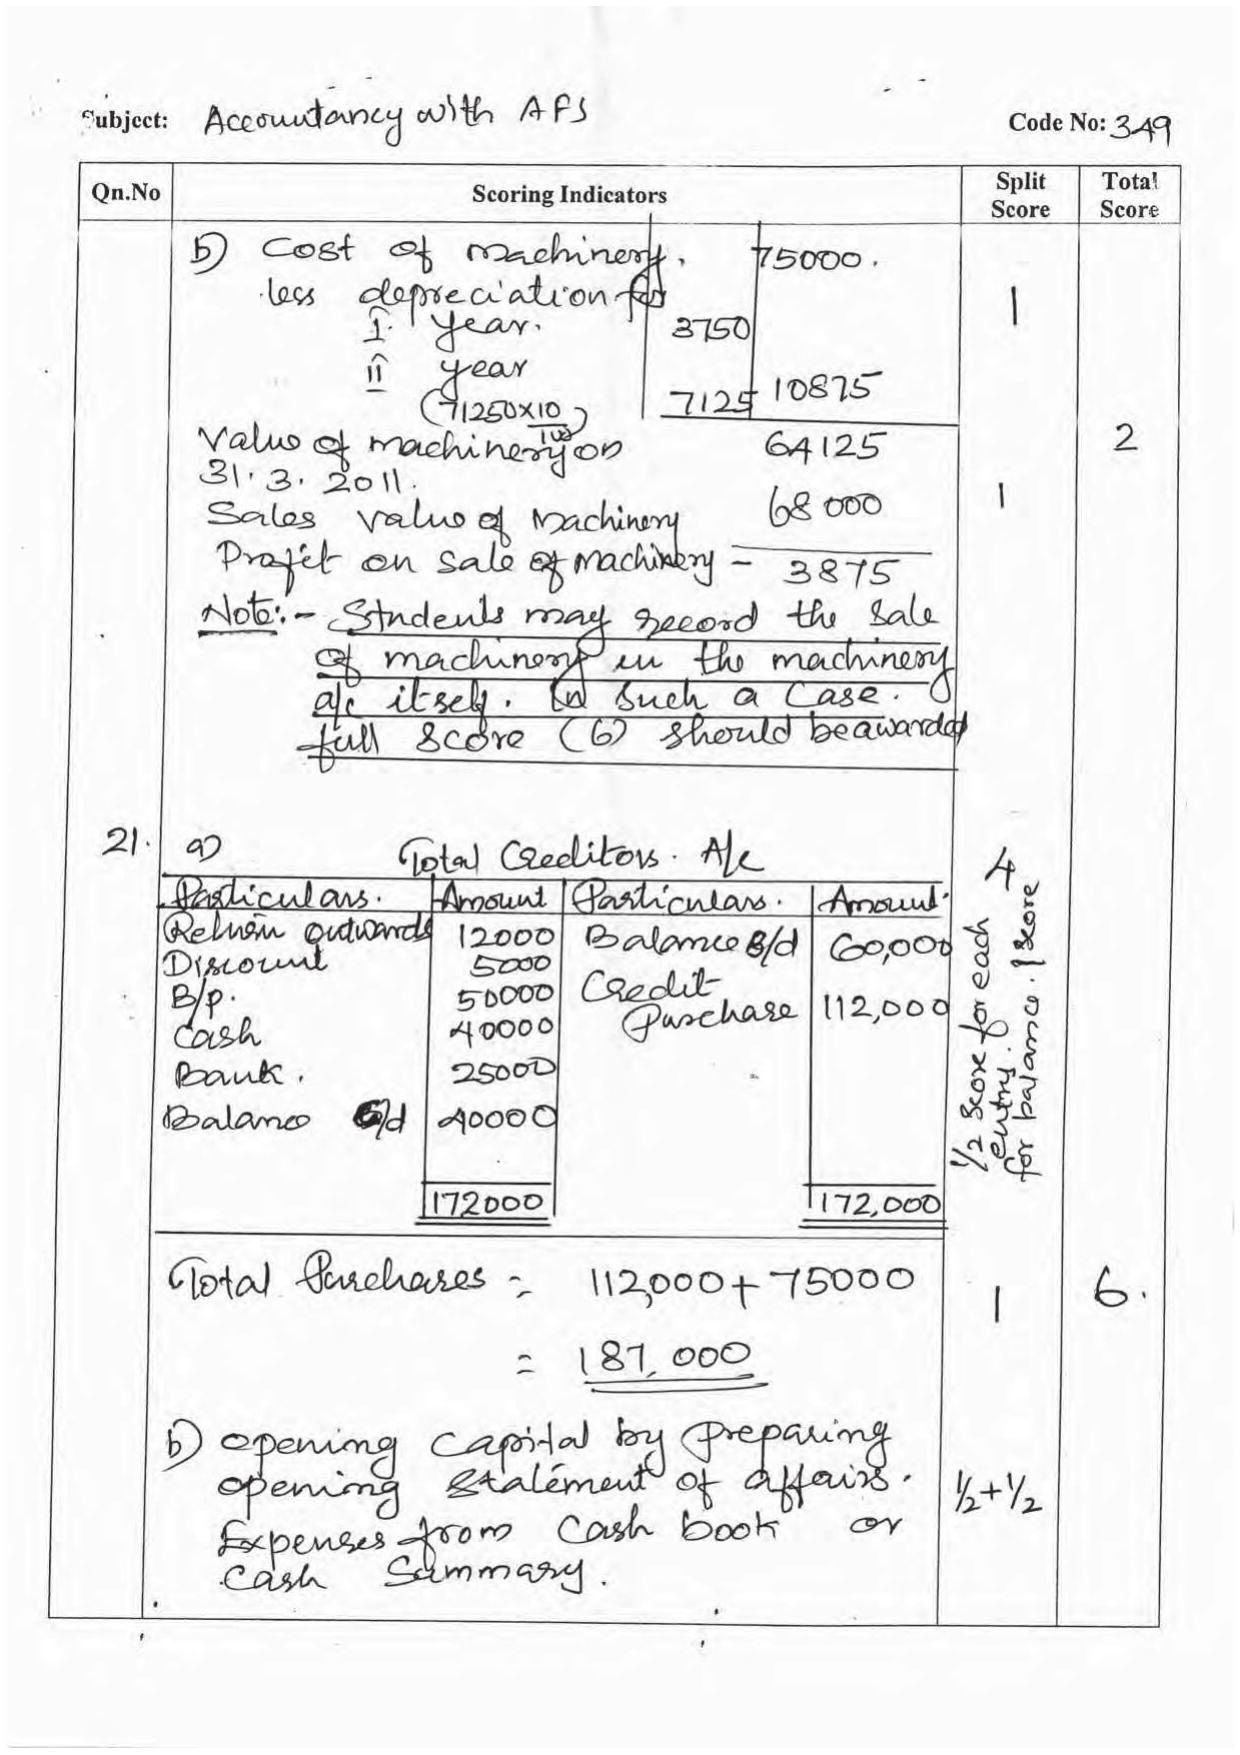 Subject: Accountancy with AFS Code No: 349
Qn.No Scoring Indicators Split Score Total Score
b) Cost of machinery. 75000.
less depreciation for 1
I year. 3750
II year
(71250×10/100) 7125 10875
Value of machinery on 64125 2
31.3.2011.
Sales value of Machinery 68000 1
Profit on sale of machinery - 3875
Note:- Students may record the sale
of machinery in the machinery
a/c itself. In such a case.
full score (6) should be awarded
21. a) Total Creditors. A/c 4
Particulars. Amount Particulars. Amount
Return outwards 12000 Balance B/d 60,000
Discount 5000
B/p. 50000 Credit
Purchase 112,000
Cash 40000
Bank. 25000
Balance C/d 40000
172000 172,000
1/2 Score for each
entry.
for balance. 1 score
Total Purchases = 112,000 + 75000 1 6.
= 187,000
b) opening capital by preparing
opening statement of affairs. 1/2+1/2
Expenses from Cash book or
Cash Summary.